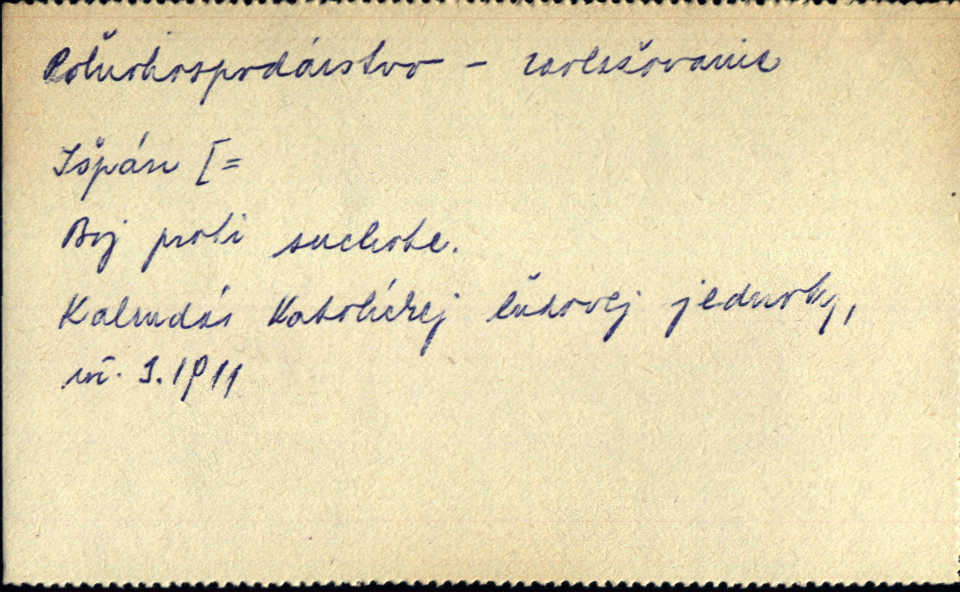 Poľnohospodárstvo - zavlažovanie
Išpán [=
Boj proti suchote.
Kalendár Katolíckej ľudovej jednoty,
roč. 1.1911